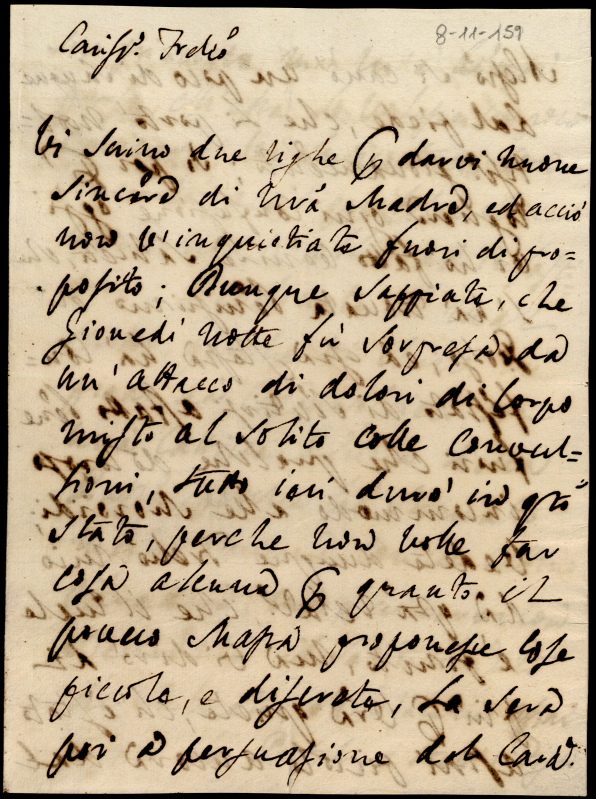 8-11-159
Cariss.º
Vi scrivo due righe ꝑ darvi nuove
sincere di vrâ Madre, ed acciò
non v'inquietiate fuori di pro=
posito; Dunque sappiate, che
Giovedi notte fù sorpresa da
un'attacco di dolori di Corpo
misto al solito colle convul=
sioni, tutto ieri durò in qto
stato, perche non volle far
cosa alcuna ꝑ quanto il
povero proponesse cose
piccole, e discrete, La sera
poi a persuasione del Card.